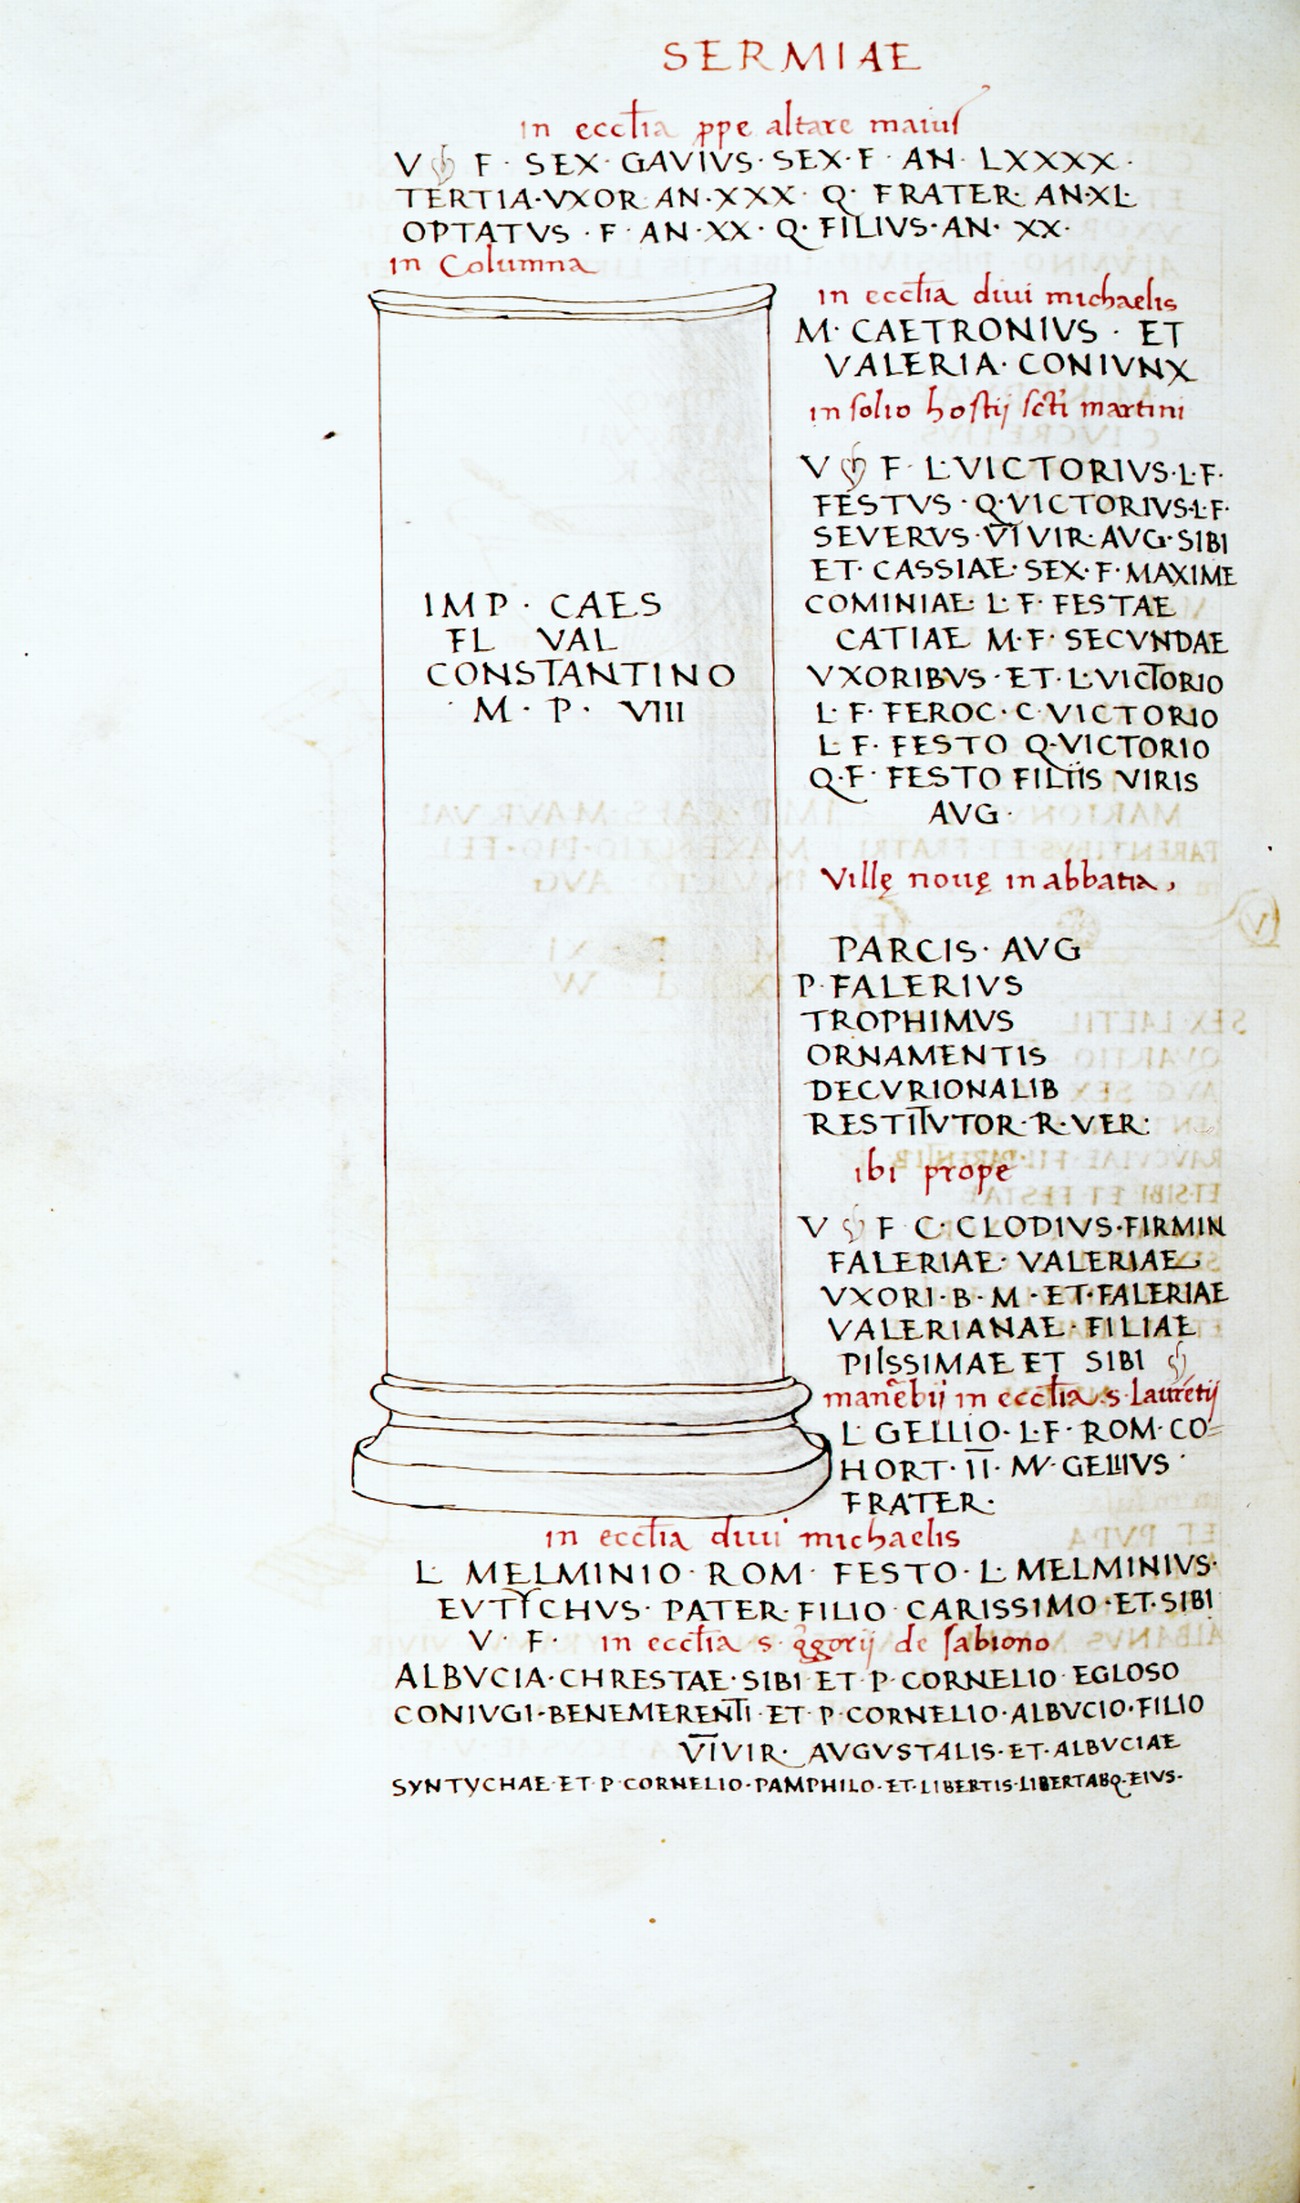 SERMIAE
in eccłia ppe altare maiuſ
V ❦ F · SEX · GAVIVS · SEX · F · AN · LXXXX ·
TERTIA · VXOR AN · XXX · Q · FRATER · AN · XL ·
OPTATVS · F · AN · XX · Q · FILIVS · AN · XX ·
in Columna
IMP · CAES
FL VAL
CONSTANTINO
· M · P · VIII
in eccłia diui michaelis
M · CAETRONIVS · ET
VALERIA · CONIVNX
in ſolio hoſtij ſcti martini
V ❦ F · L · VICTORIVS · L · F ·
FESTVS · Q · VICTORIVS · L · F ·
SEVERVS · V̅I̅ VIR · AVG · SIBI
ET · CASSIAE · SEX · F · MAXIME
COMINIAE · L · F · FESTAE
CATIAE M · F · SECVNDAE
VXORIBVS · ET · L · VICTORIO
L · F · FEROC · C · VICTORIO
L · F · FESTO Q · VICTORIO
Q · F · FESTO FILIIS VIRIS
AVG ·
Villę nouę in abbatia,
PARCIS · AVG
P · FALERIVS
TROPHIMVS
ORNAMENTIS
DECVRIONALIB
RESTITVTOR · R · VER :
ibi prope
V ❦ F C · CLODIVS · FIRMIN
FALERIAE · VALERIAE
VXORI · B · M · ET · FALERIAE
VALERIANAE · FILIAE
PIISSIMAE ET SIBI ❦
manēbij in eccłia · s · laurētij
L · GELLIO · L · F · ROM · CO=
HORT · I̅I̅ · M · GELLIVS ·
FRATER ·
in eccłia diui michaelis
L · MELMINIO · ROM · FESTO · L · MELMINIVS ·
EVTYCHVS · PATER · FILIO CARISSIMO · ET · SIBI
V · F · in eccłia s · ggorij de ſabiono
ALBVCIA · CHRESTAE · SIBI ET P · CORNELIO EGLOSO
CONIVGI · BENEMERENTI · ET P · CORNELIO · ALBVCIO · FILIO
V̅I̅VIR · AVGVSTALIS · ET · ALBVCIAE
SYNTYCHAE · ET P · CORNELIO · PAMPHILO · ET · LIBERTIS · LIBERTABQ · EIVS ·